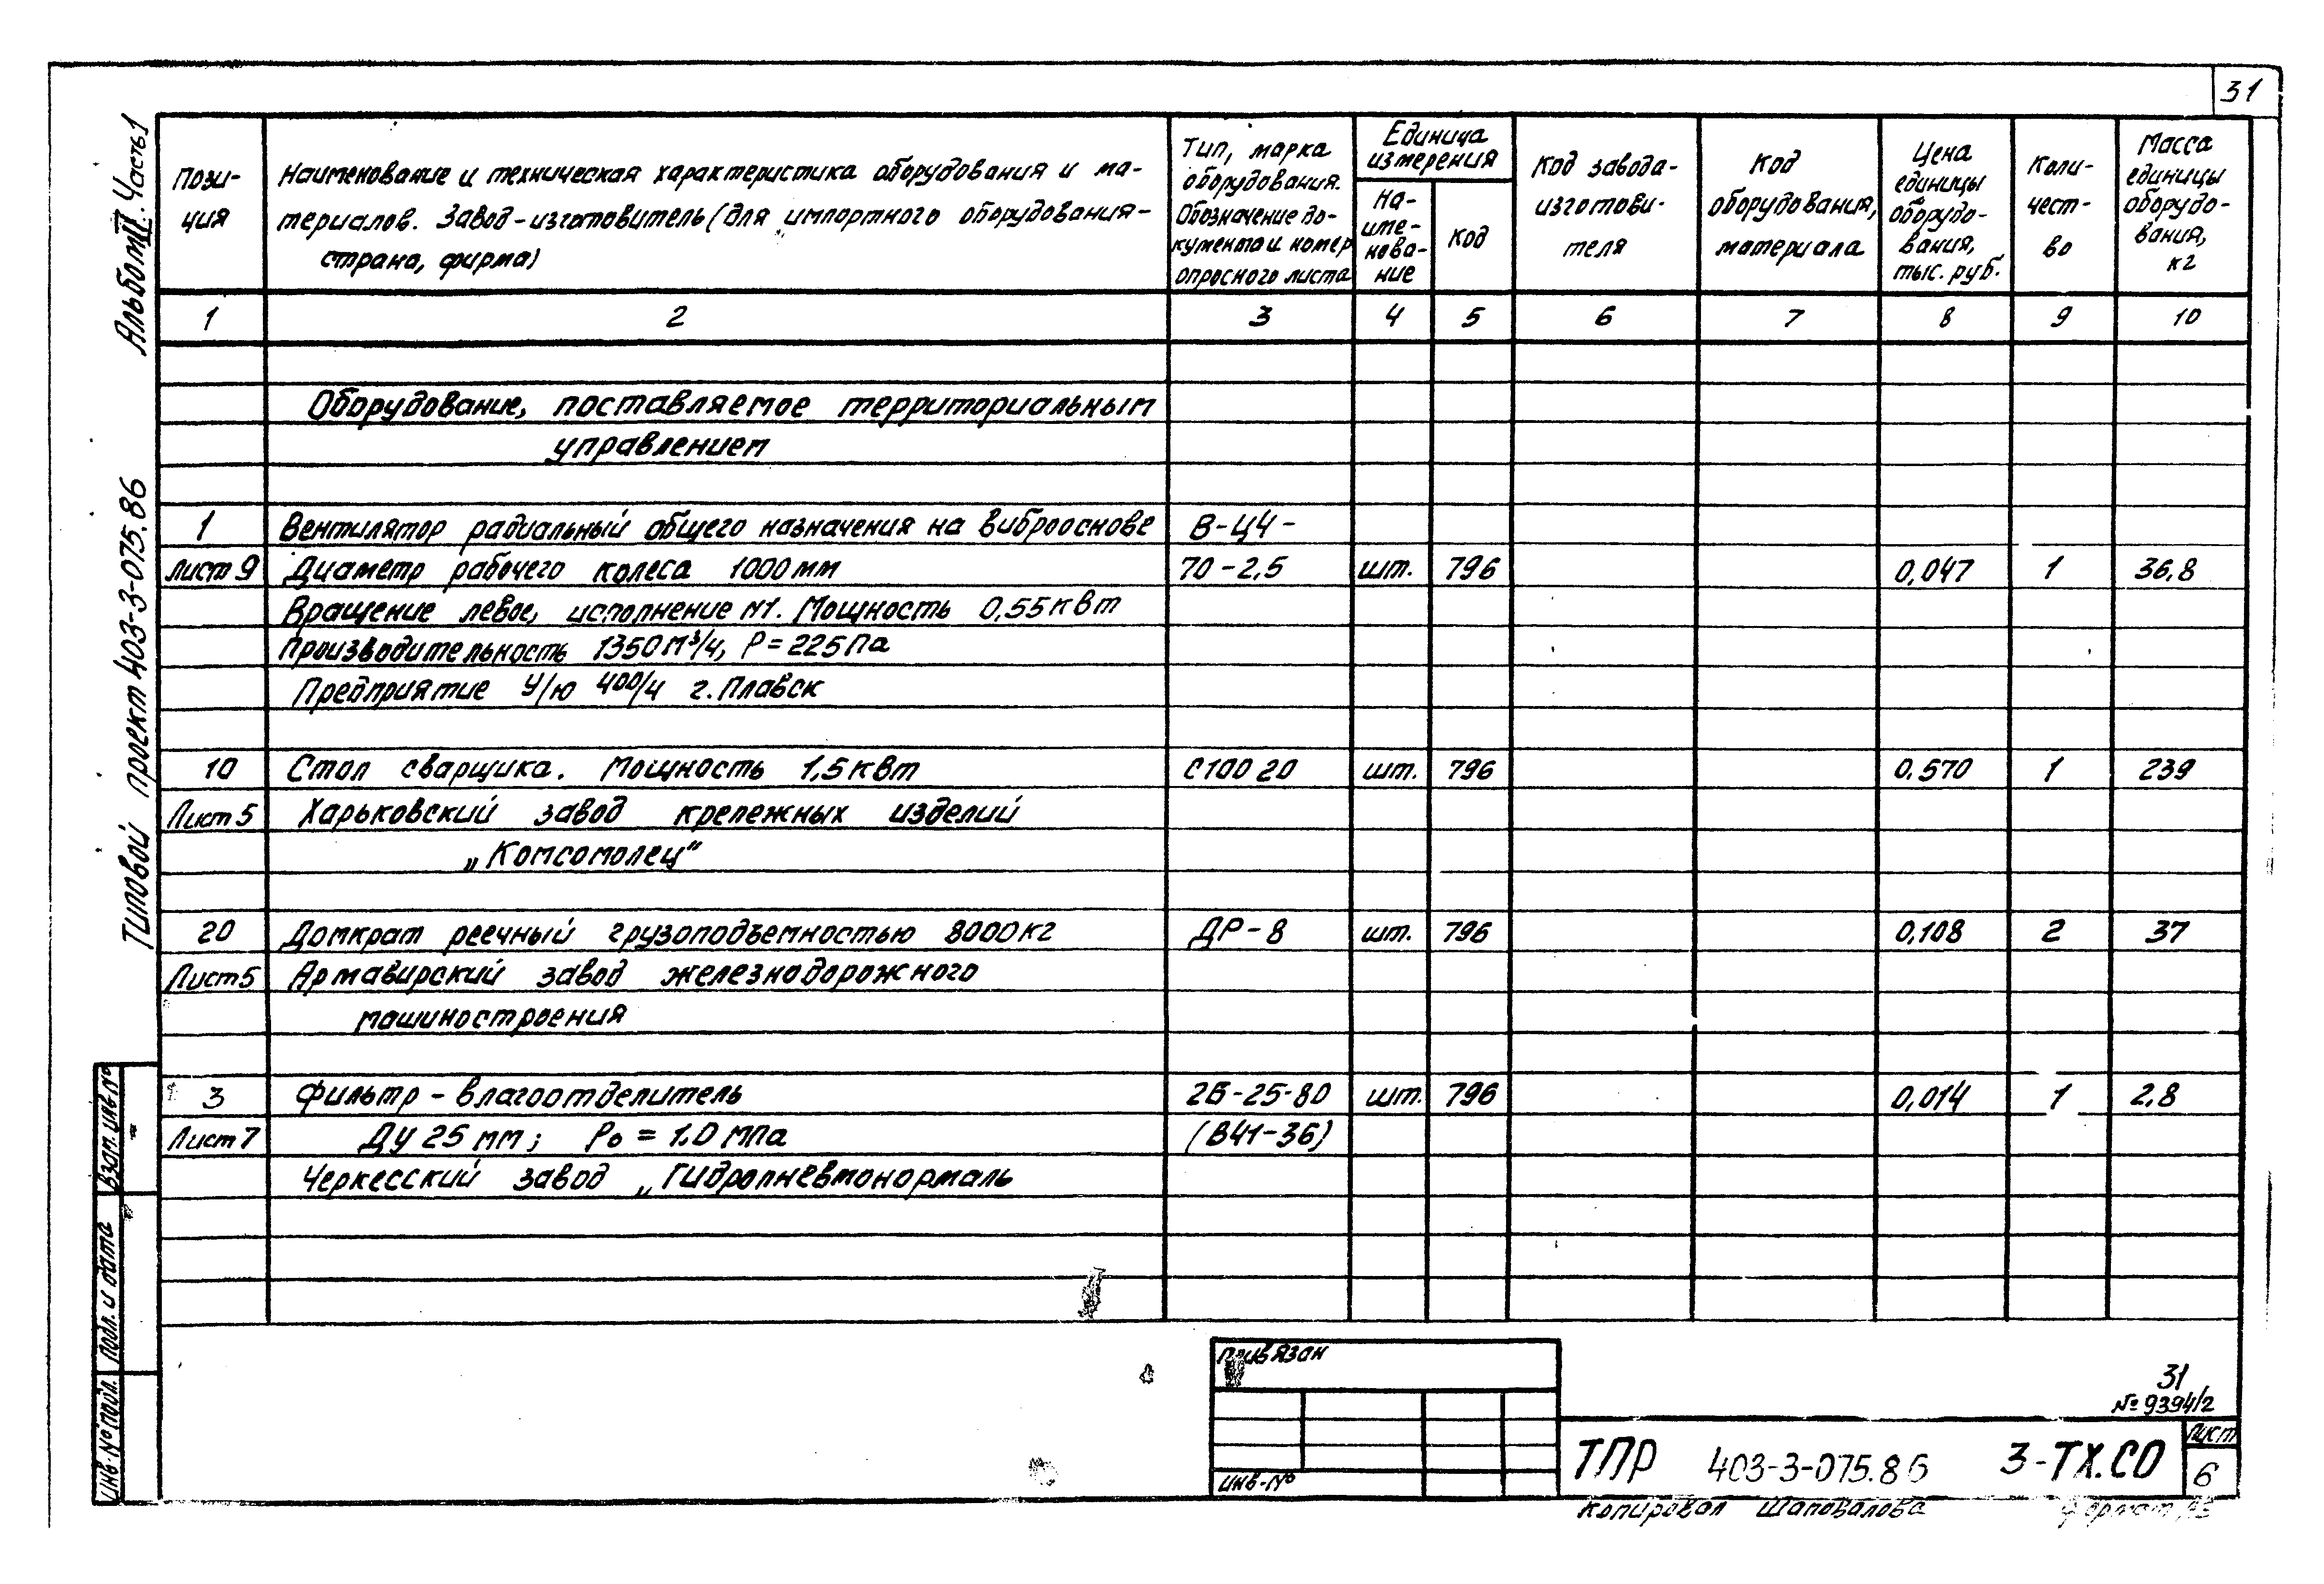 31
Альбом II. Часть 1
Типовой проект 403-3-075.86
Пози-
ция
Наименование и техническая характеристика оборудования и ма-
териалов. Завод-изготовитель (для импортного оборудования-
страна, фирма)
Тип, марка
оборудования.
Обозначение до-
кумента и номер
опросного листа
Единица
измерения
На-
име-
нова-
ние
Код
Код завода-
изготови-
теля
Код
оборудования,
материала
Цена
единицы
оборудо-
вания,
тыс. руб.
Коли-
чест-
во
Масса
единицы
оборудо-
вания,
кг
1 2 3 4 5 6 7 8 9 10
Оборудование, поставляемое территориальным
управлением
1 Вентилятор радиальный общего назначения на виброоснове В-Ц4-
Лист 9 Диаметр рабочего колеса 1000 мм 70-2,5 шт. 796 0,047 1 36,8
Вращение левое, исполнение N1. Мощность 0,55 квт
Производительность 1350 м³/ч, Р = 225 Па
Предприятие У/ю 400/4 г. Плавск
10 Стол сварщика. Мощность 1,5 квт С10020 шт. 796 0,570 1 239
Лист 5 Харьковский завод крепежных изделий
„Комсомолец"
20 Домкрат реечный грузоподъемностью 8000 кг ДР-8 шт. 796 0,108 2 37
Лист 5 Армавирский завод железнодорожного
машиностроения
3 Фильтр-влагоотделитель 2В-25-80 шт. 796 0,014 1 2,8
Лист 7 ДУ 25 мм; Ро = 1.0 мПа (В41-36)
Черкесский завод „Гидропневмонормаль
Взам. инв №
Подп. и дата
Инв. № подл.
Привязан
Инв. №
31
№ 9394/2
ТПР 403-3-075.86 3-ТХ.СО
Лист
6
Копировал Шаповалова Формат А3